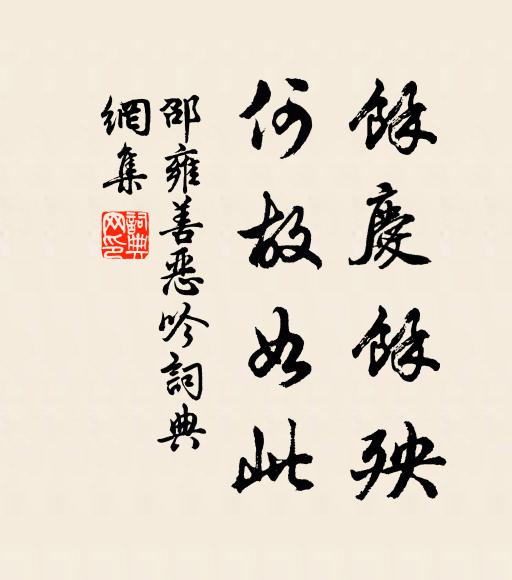 餘慶餘殃
何故如此
邵雍善惡吟詞典
網集
詞典
网印